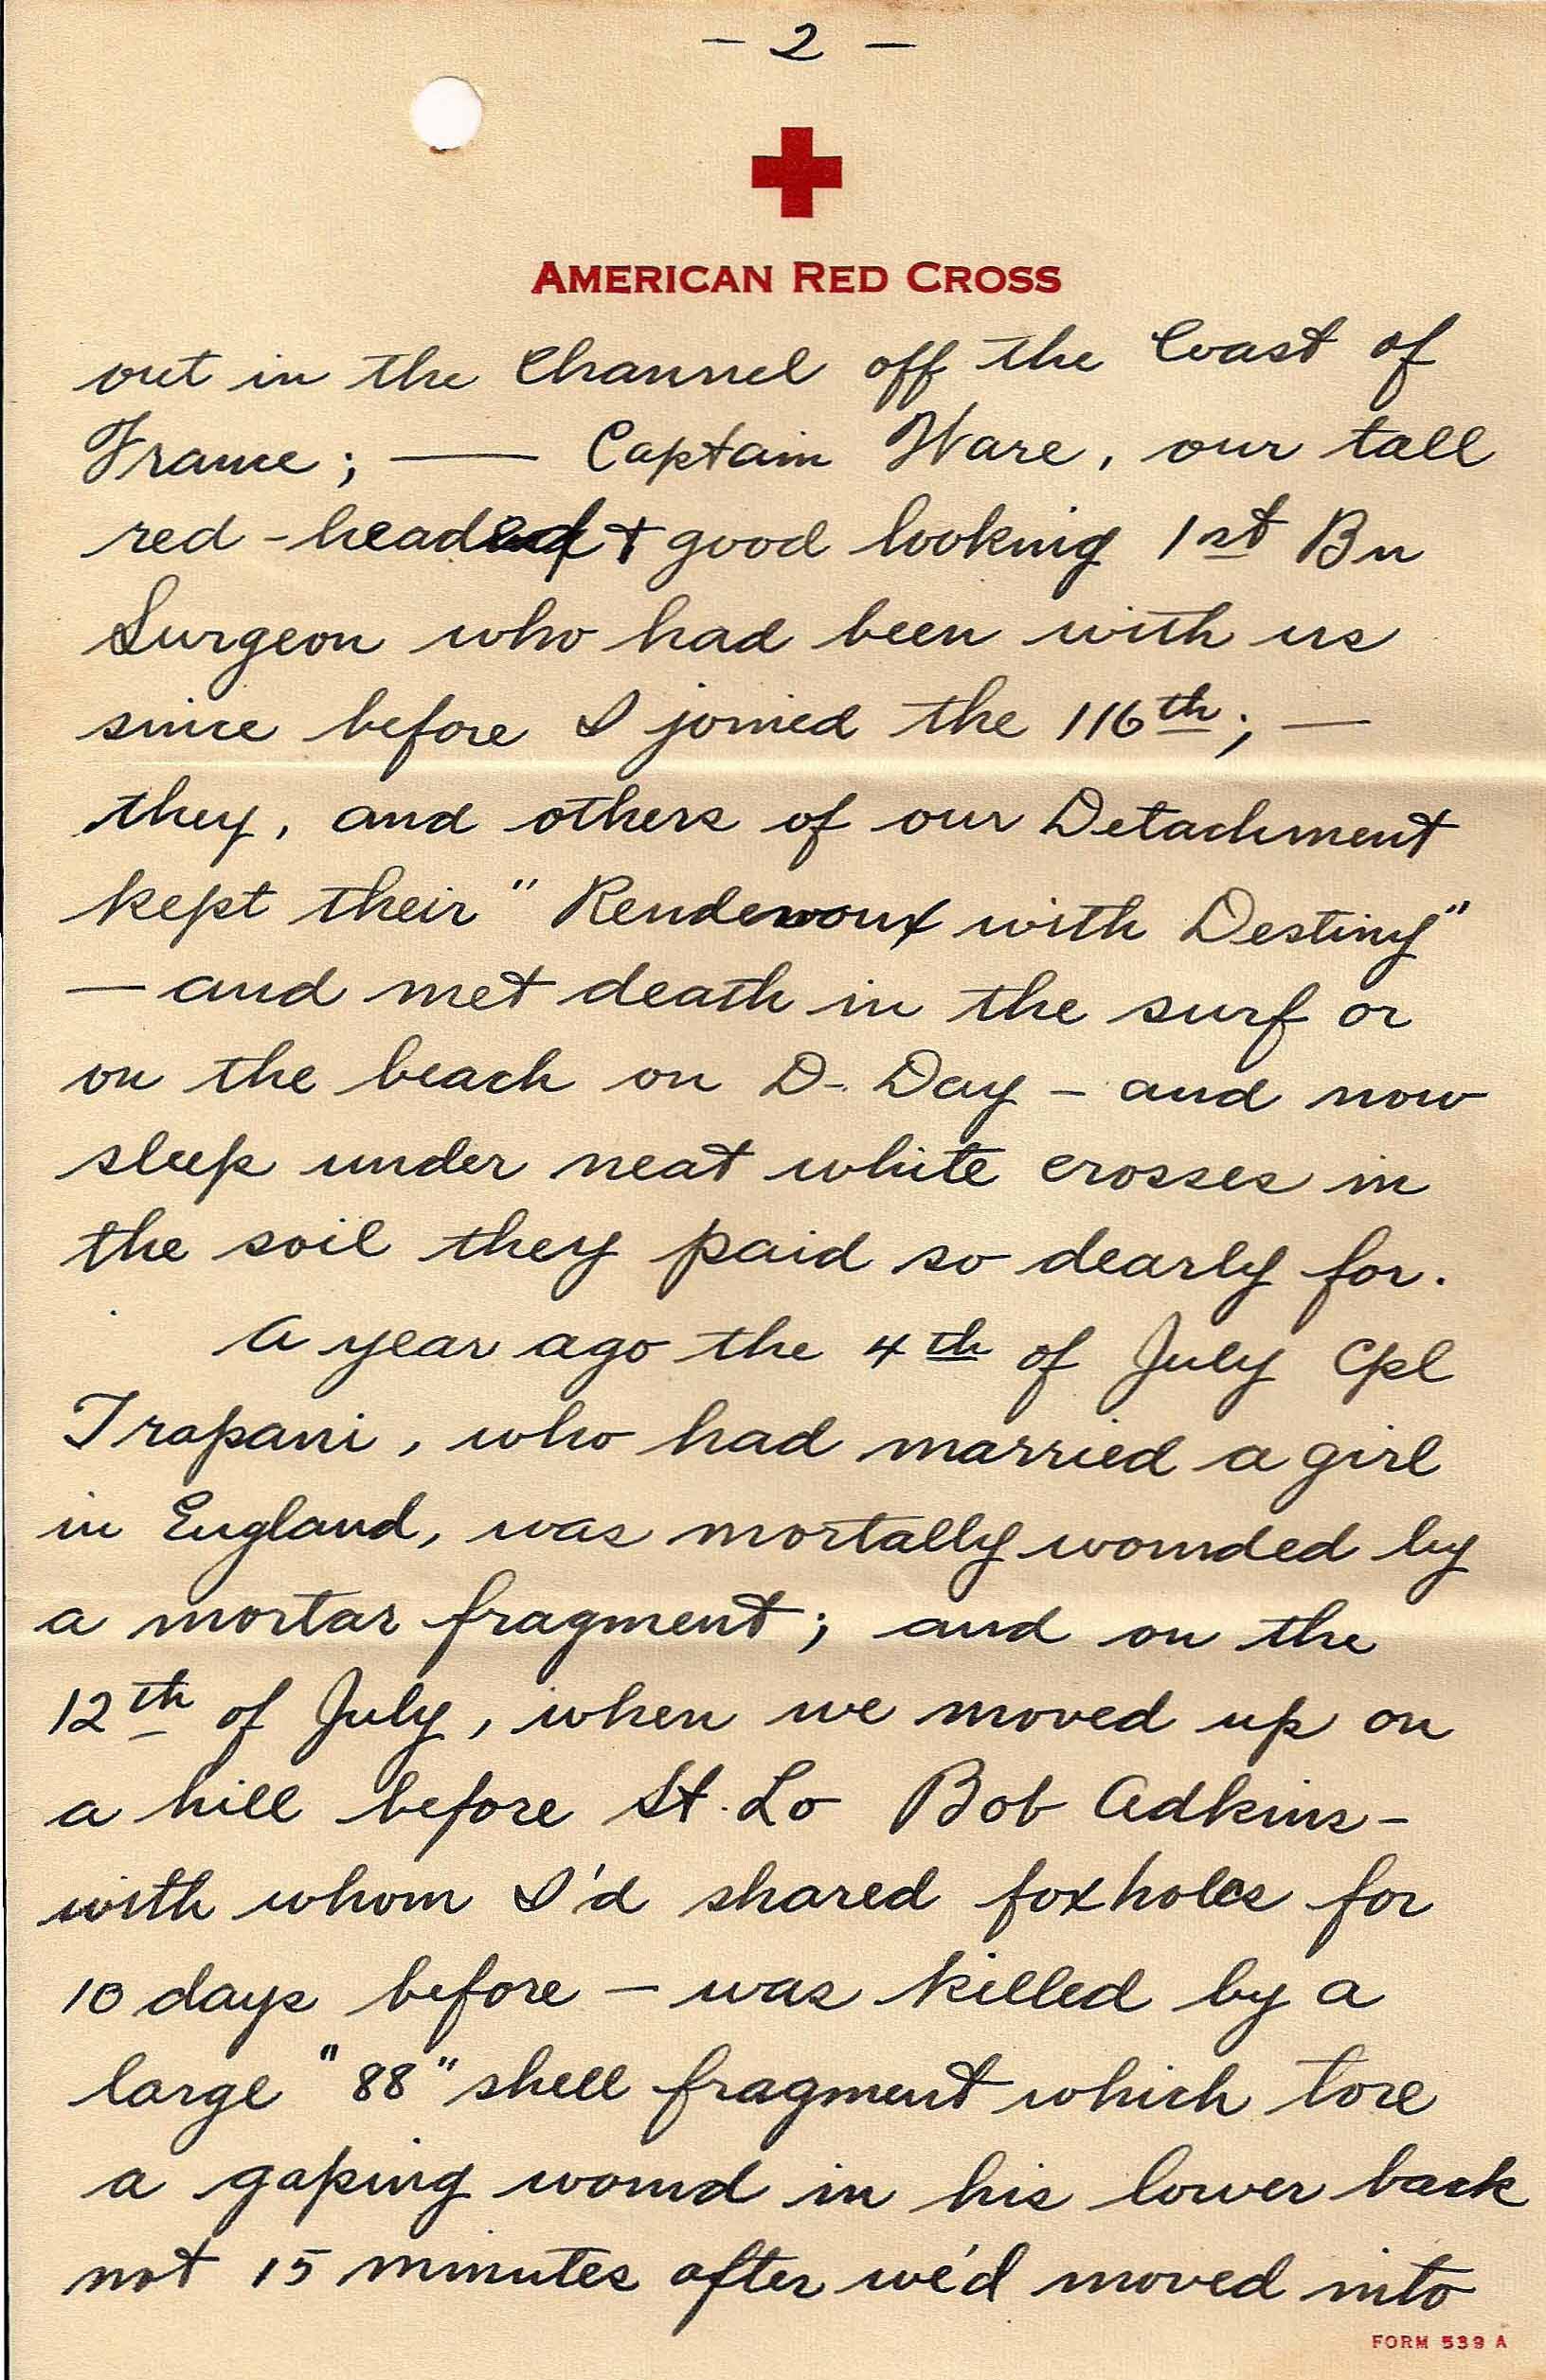 - 2 -
AMERICAN RED CROSS
out in the Channel off the Coast of
France; — Captain Ware, our tall
red-headed & good looking 1st Bn
Surgeon who had been with us
since before I joined the 116th; —
they, and others of our Detachment
kept their "Rendevoux with Destiny"
— and met death in the surf or
on the beach on D-Day - and now
sleep under neat white crosses in
the soil they paid so dearly for.
A year ago the 4th of July Cpl
Trapani, who had married a girl
in England, was mortally wounded by
a mortar fragment; and on the
12th of July, when we moved up on
a hill before St. Lo Bob Adkins -
with whom I'd shared foxholes for
10 days before - was killed by a
large "88" shell fragment which tore
a gaping wound in his lower back
not 15 minutes after we'd moved into
FORM 539 A